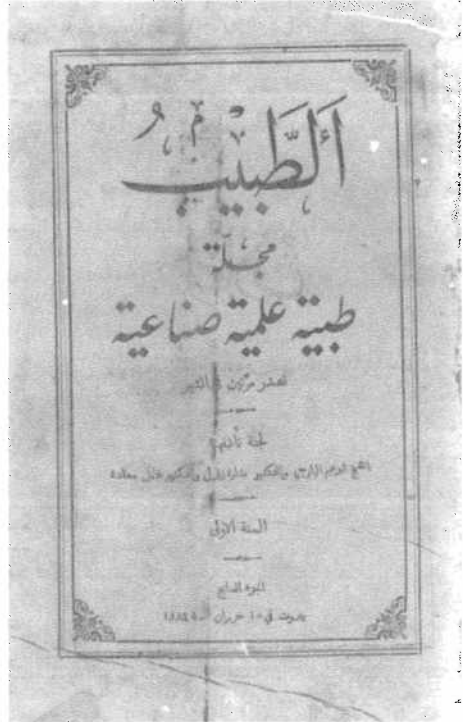 الطَّبِيب
مجلّة
طبية علمية صناعية
تصدر مرتين في الشهر
لجنة تأليفها
الشيخ ابرهيم اليازجي والدكتور بشارة زلزل والدكتور خليل سعادة
السنة الاولى
الجزء السابع
بيروت في ١٥ حزيران سنة ١٨٨٤